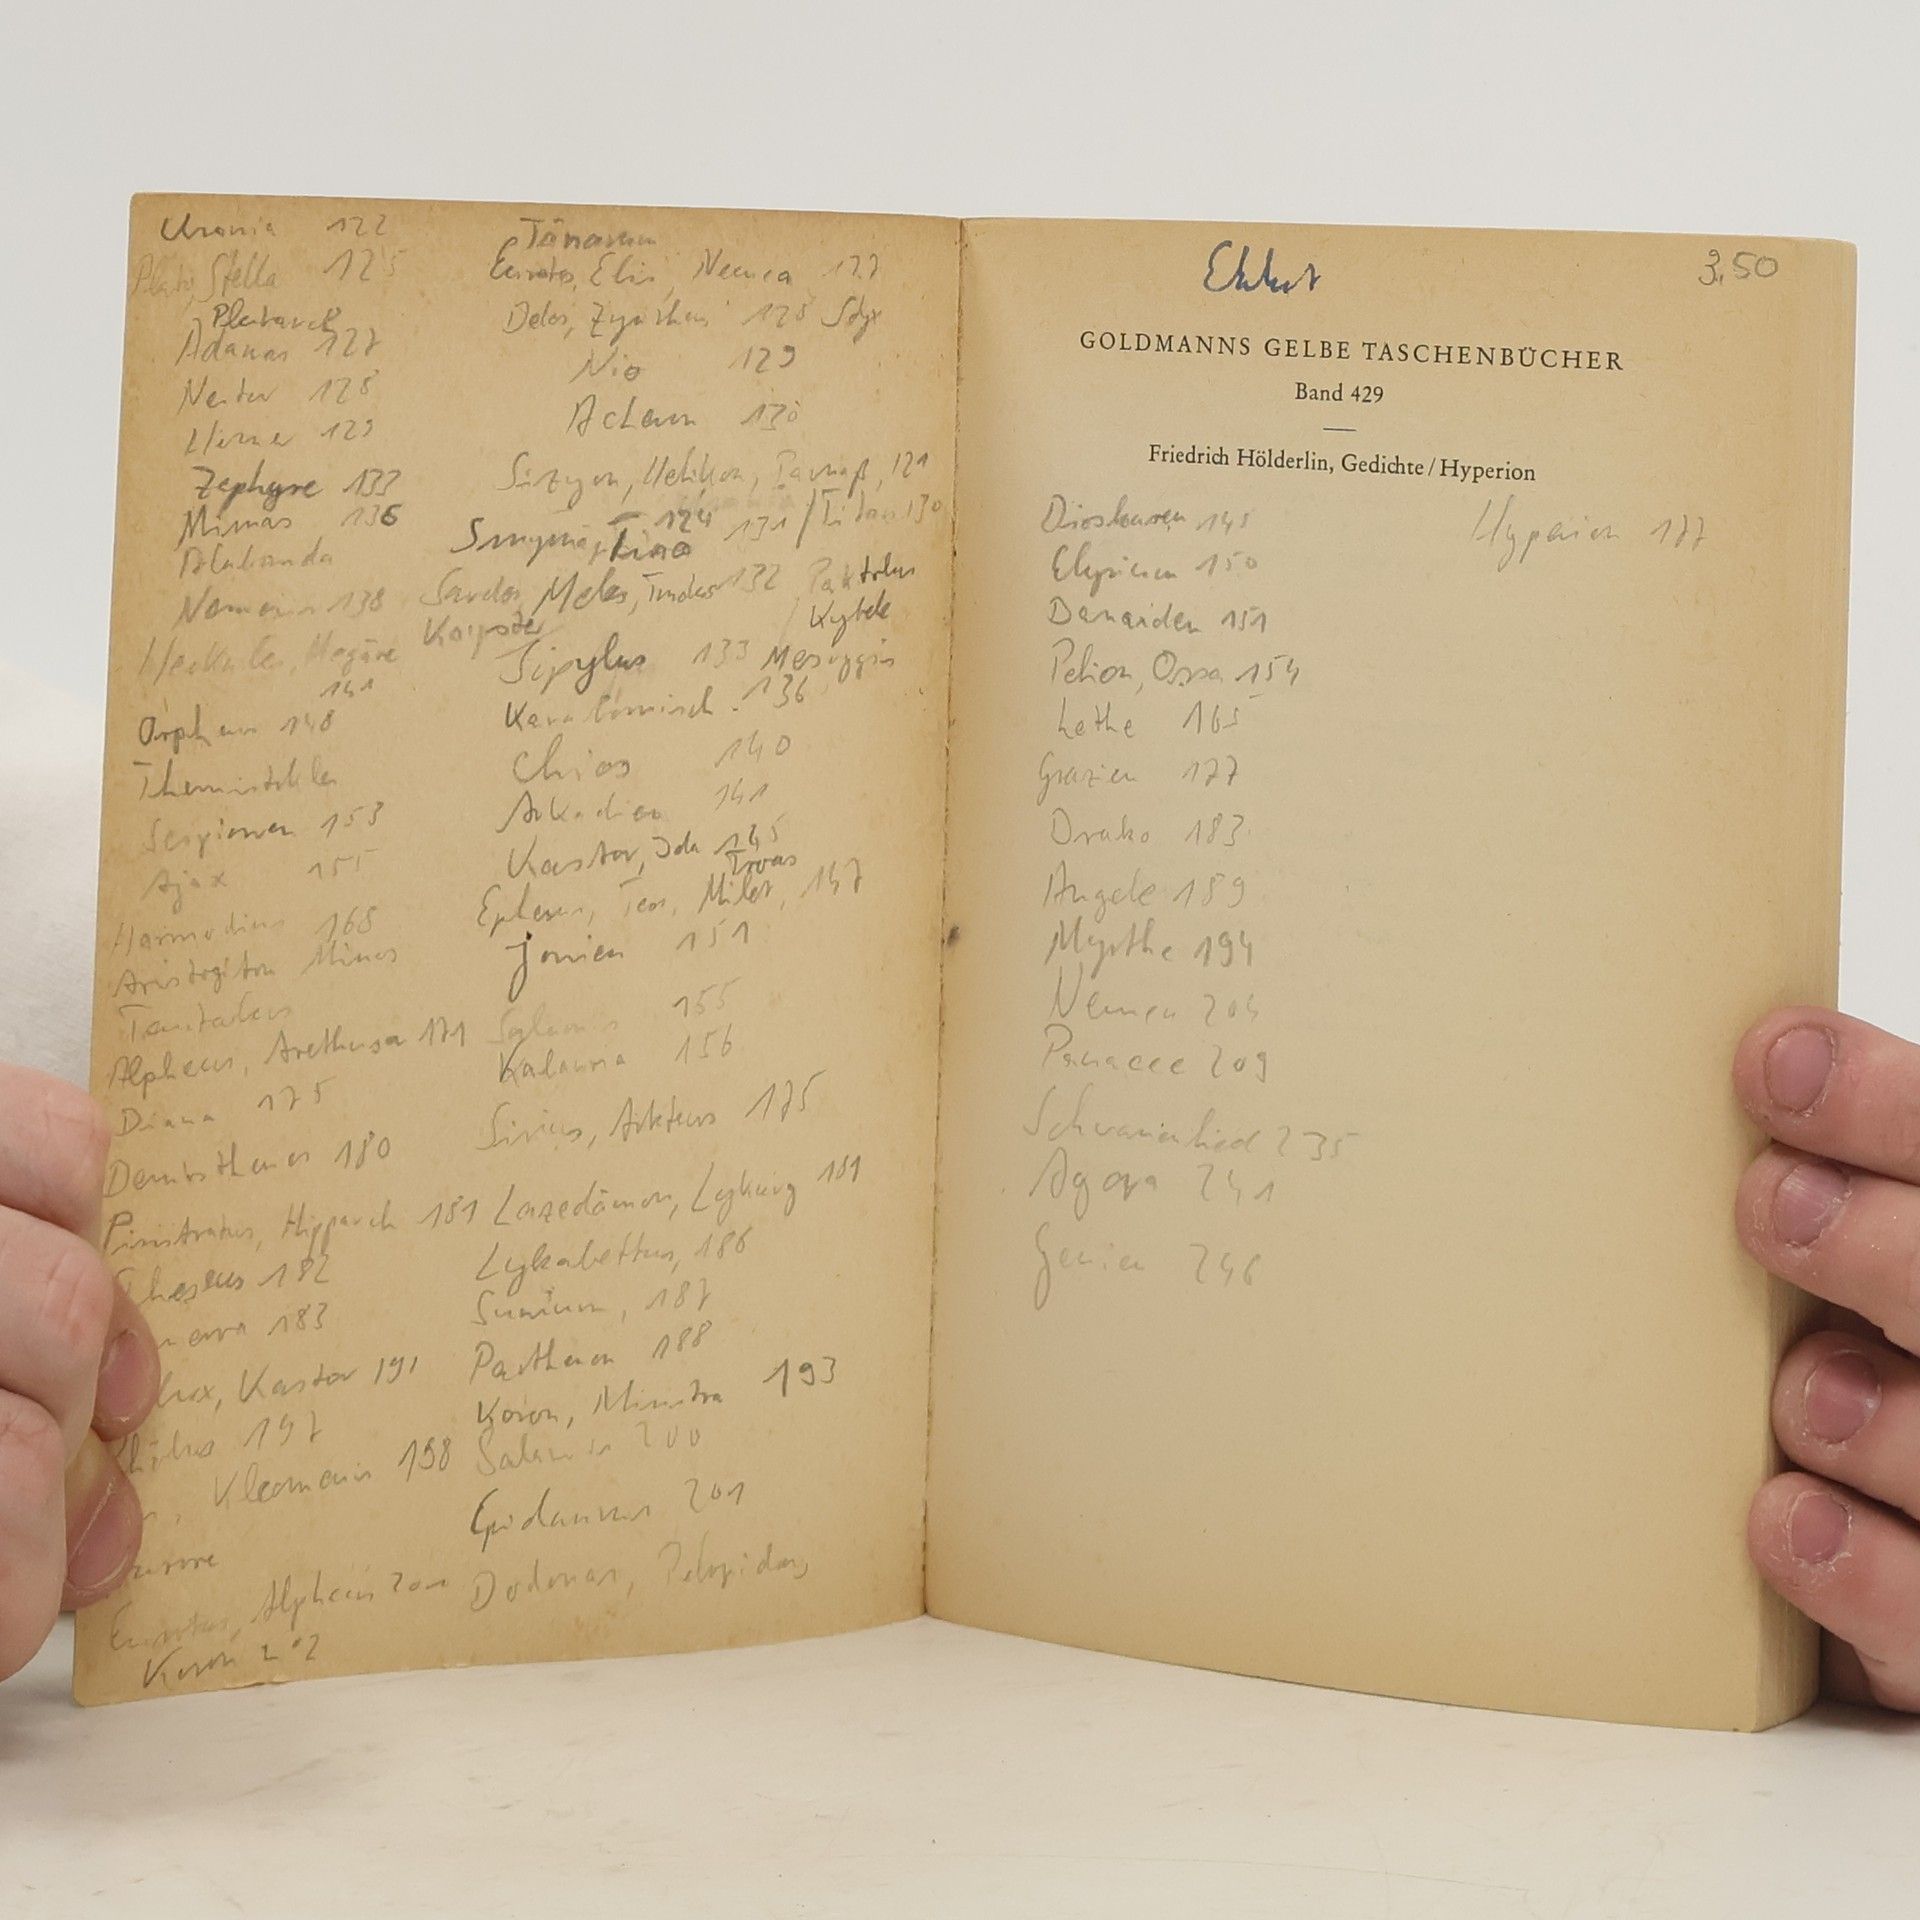 Urania 122
Plato, Stella 125
Plutarch
Adamas 127
Nestor 128
129
Zephyre 133
Mimas 136
Alabanda
Nemesis 138
Herkules, Megäre
141
Orpheus 148
Themistokles
Scipionen 153
Ajax 155
Harmodius 168
Aristogiton Minos
Tantalus
Alpheus, Arethusa 171
Diana 175
Demosthenes 180
Pisistratus, Hipparch 181
Theseus 182
183
Kastor 191
197
Kleomenis 198
Eurotas, Alpheus
Koron 202
Tänarum
Eurotas, Elis, Nemea 127
Delos, Zynthus 128 Styx
Nio 129
Acheron 130
Sizyon, Helikon, Parnaß, 121
124
Smyrna, Tino 131 / Titan 130
Sardes, Meles, Tmolus 132 Paktolus
Kayster Kybele
Sipylus 133 Messogis
136
Chios 140
Arkadien 141
Kastor, Ida 145
Troas
Ephesus, Teos, Milet, 147
Jonien 151
Salamis 155
Kalaurea 156
Sirius, Arkturus 175
Lazedämon, Lykurg 181
Lykabettus, 186
Sunium, 187
Parthenon 188
Koron, Misistra 193
Salamis 200
Epidaurus 201
Dodona, Pelopidas,
3.50
GOLDMANNS GELBE TASCHENBÜCHER
Band 429
Friedrich Hölderlin, Gedichte / Hyperion
Dioskuren 145
Hyperion 177
Elysium 150
Danaiden 151
Pelion, Ossa 154
Lethe 165
Grazien 177
Drako 183
Angele 189
Myrthe 194
Nemea 204
Panacee 209
Schwanenlied 235
Agora 241
Genien 246